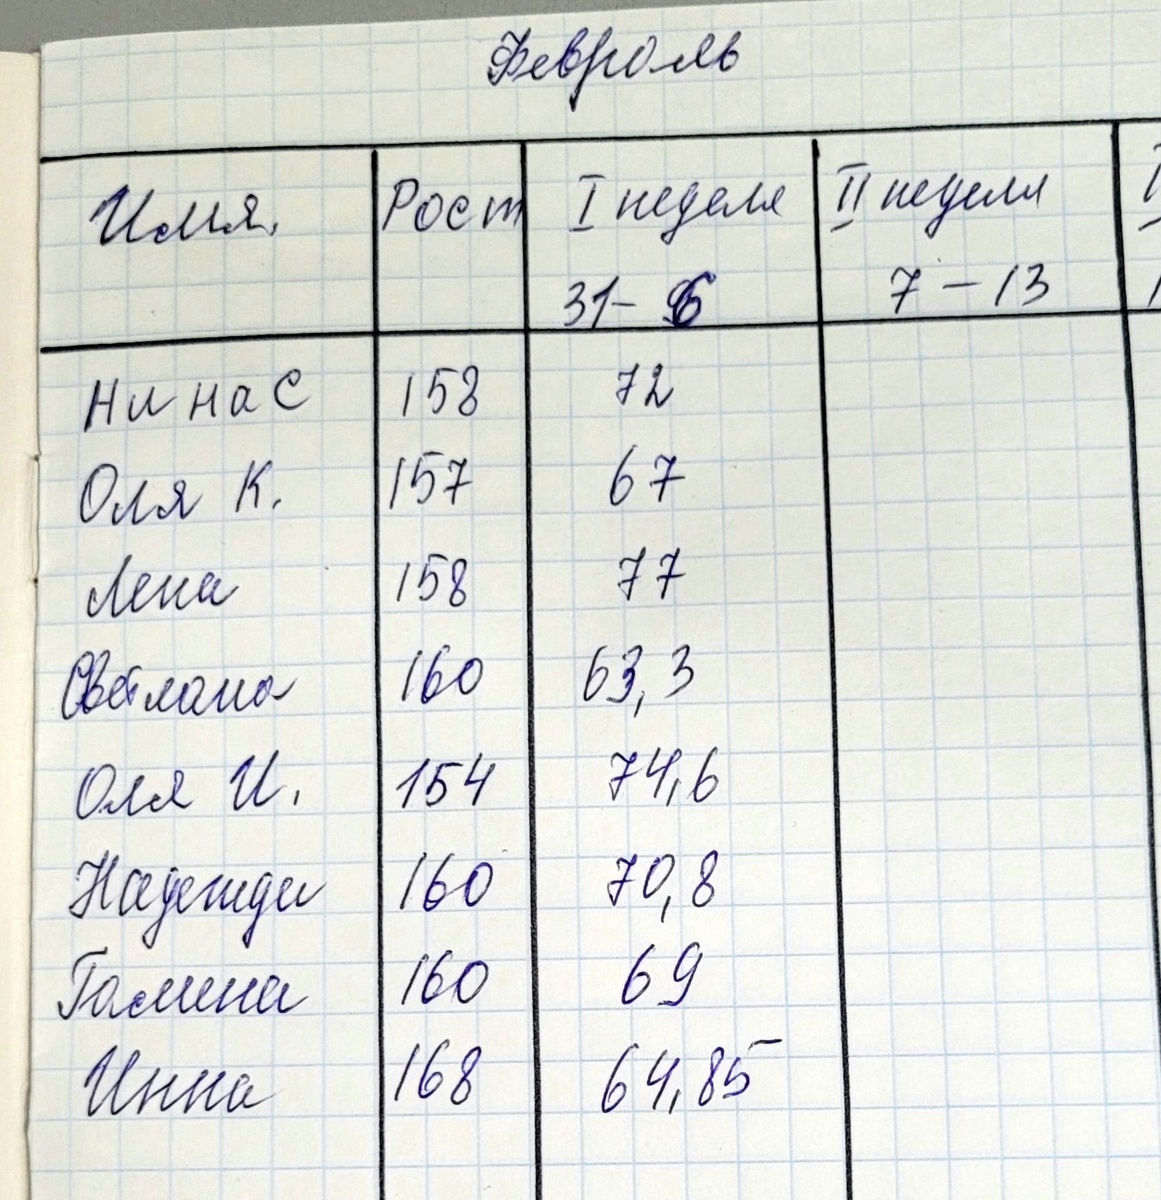 Февраль
Имя. Рост I неделя II неделя
31-6 7-13
Нина С 158 72
Оля К. 157 67
Лена 158 77
Светлана 160 63,3
Оля И. 154 74,6
Надежда 160 70,8
Галина 160 69
Инна 168 64,85